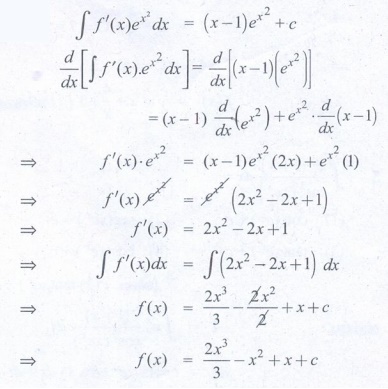 ∫ f′(x)e^{x²} dx = (x−1)e^{x²} + c
d/dx [∫ f′(x).e^{x²} dx] = d/dx [(x−1)(e^{x²})]
= (x−1) d/dx (e^{x²}) + e^{x²} · d/dx (x−1)
⇒ f′(x)·e^{x²} = (x−1)e^{x²} (2x) + e^{x²} (1)
⇒ f′(x) e^{x²} = e^{x²} (2x² − 2x + 1)
⇒ f′(x) = 2x² − 2x + 1
⇒ ∫ f′(x)dx = ∫ (2x² − 2x + 1) dx
⇒ f(x) = 2x³/3 − 2x²/2 + x + c
⇒ f(x) = 2x³/3 − x² + x + c